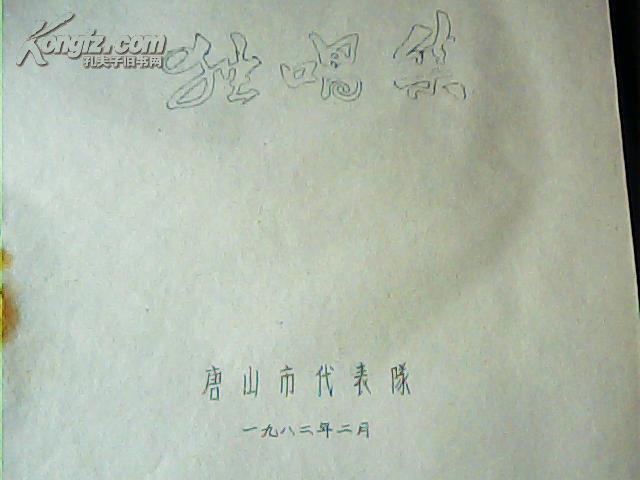 Kongfz.com
孔夫子旧书网
独唱集
唐山市代表隊
一九八二年二月